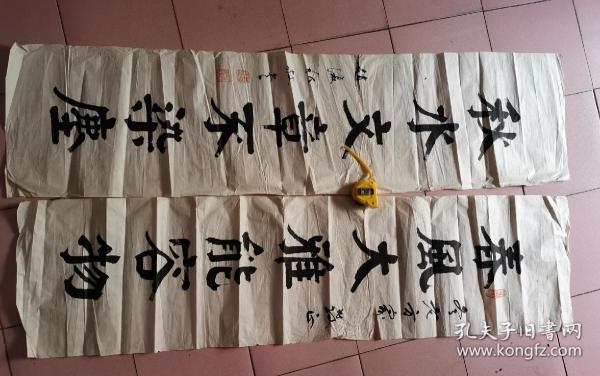 春風大雅能容物
秋水文章不染塵
孔夫子旧书网
www.kongfz.com